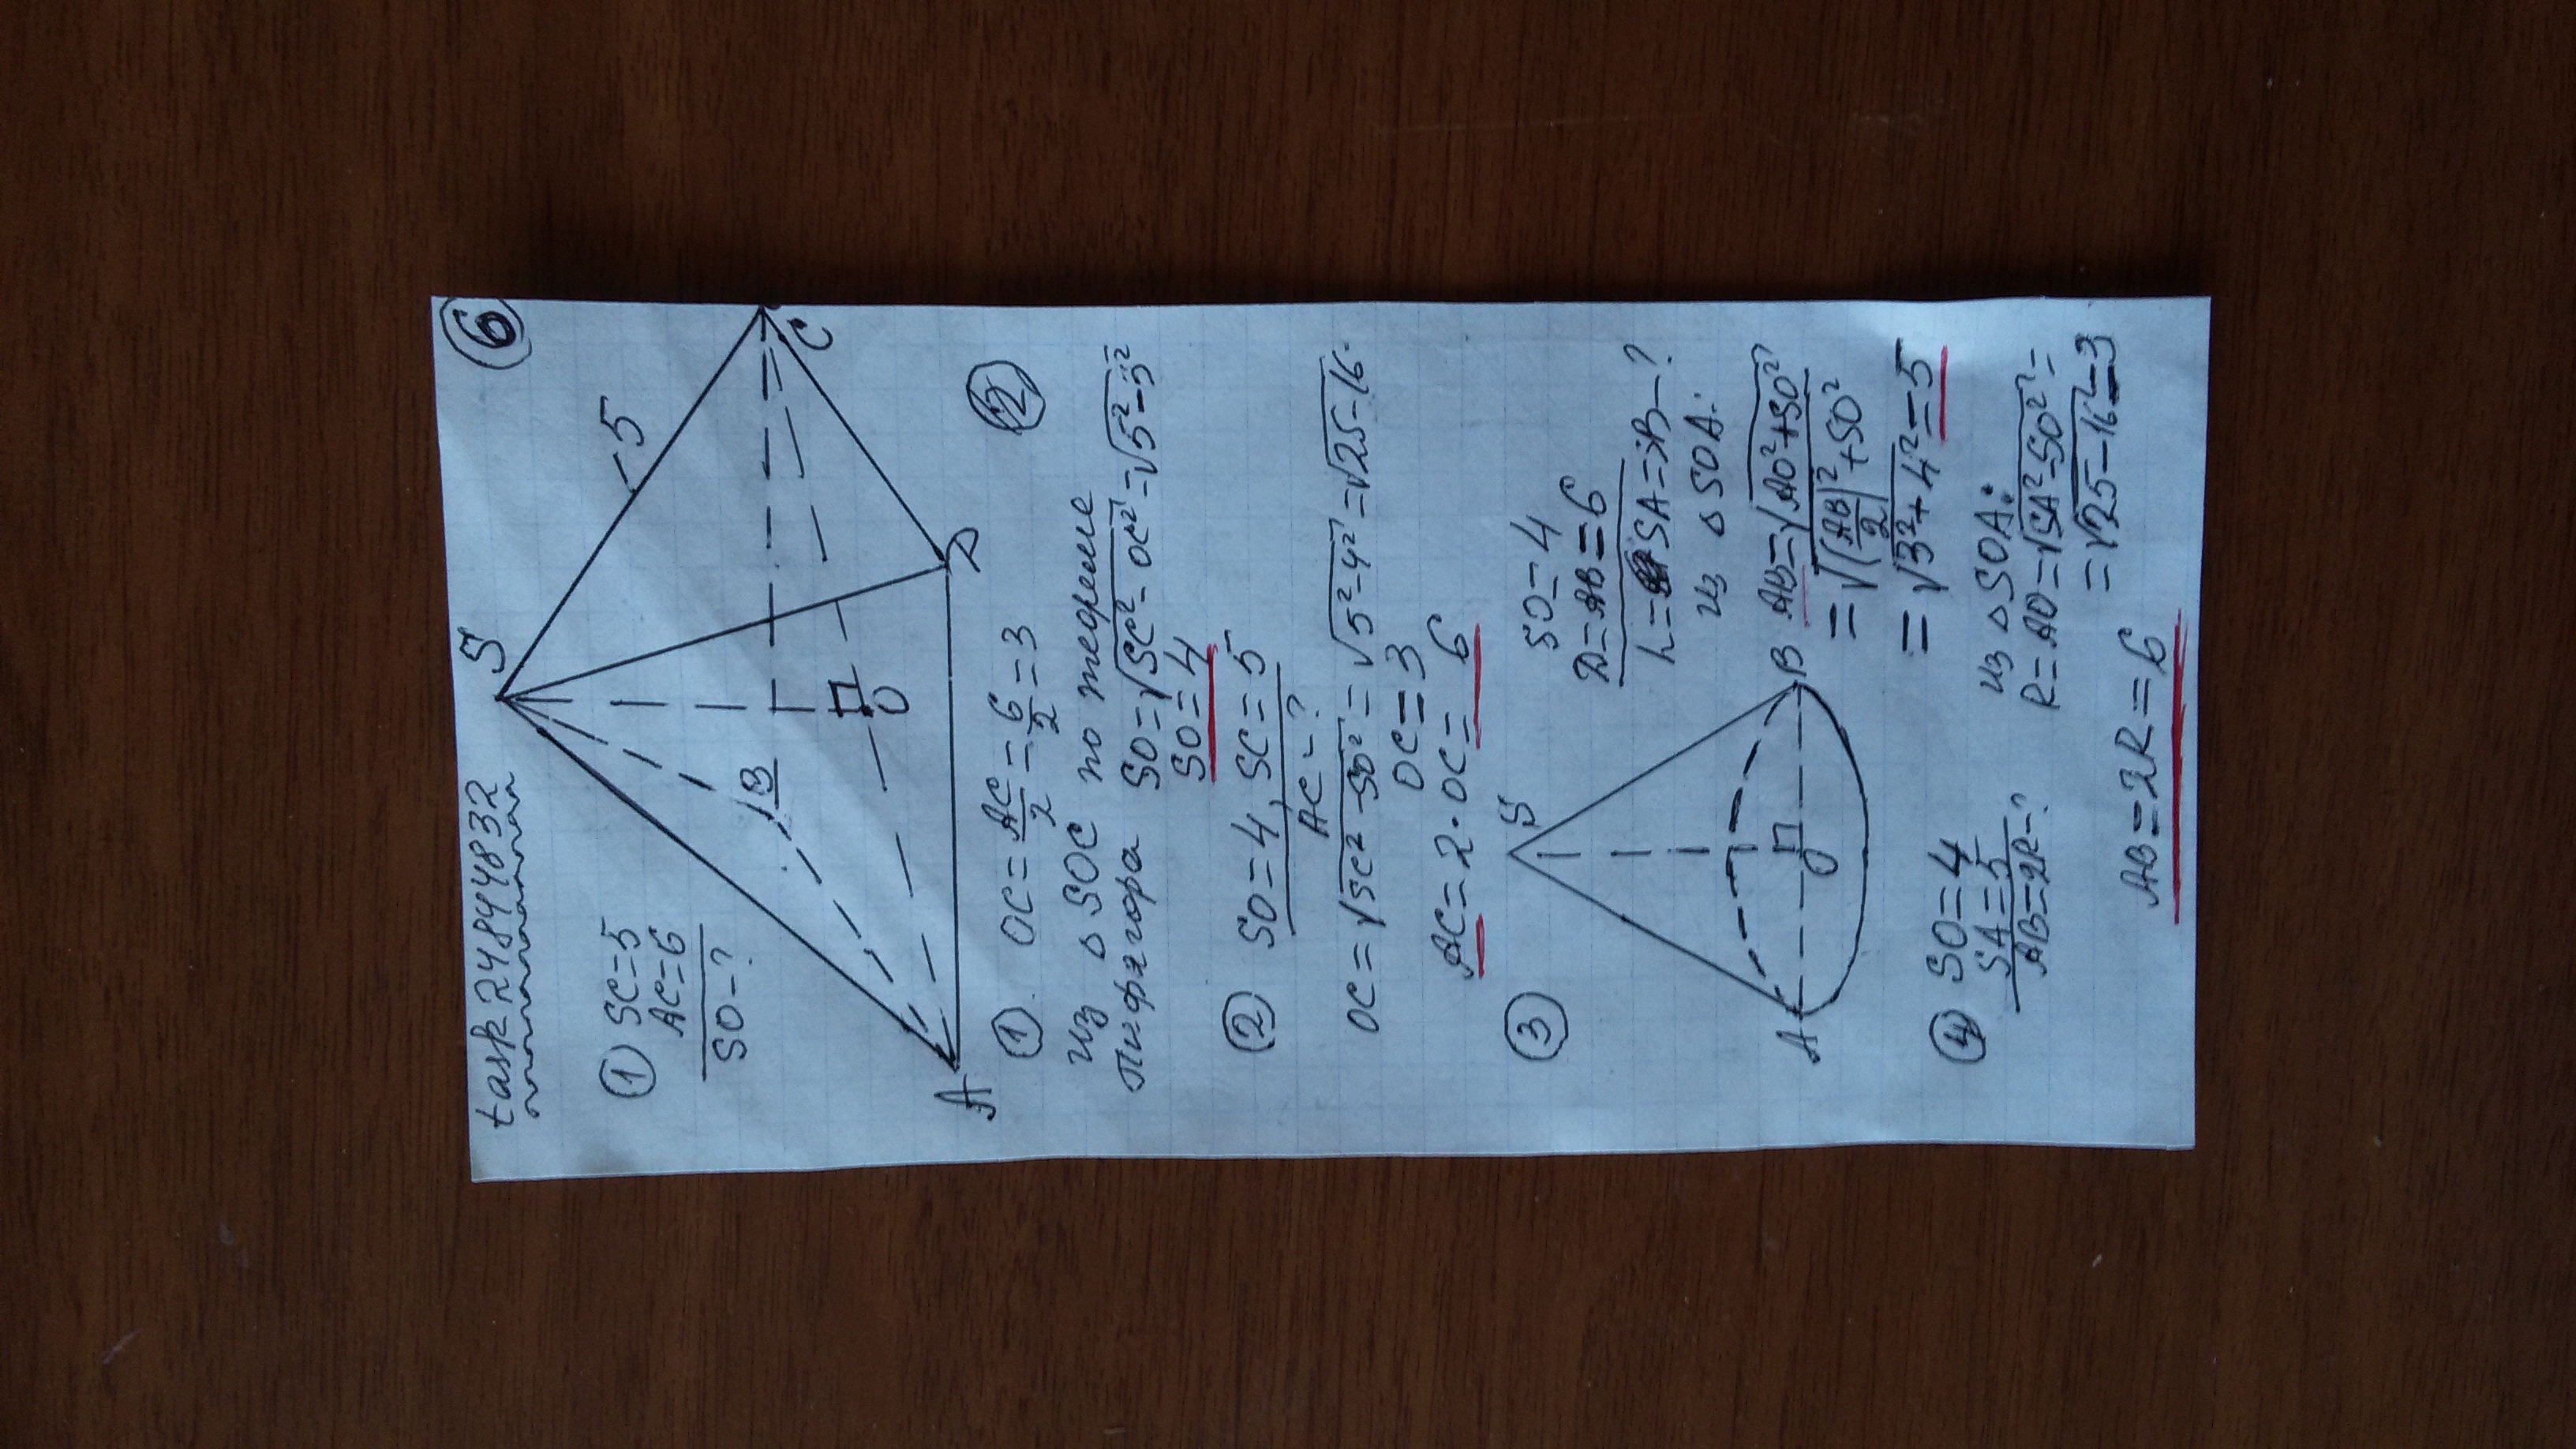 task 24844832
6
① SC=5
AC=6
SO-?
S
5
B
C
O
A
D
① OC=AC/2=6/2=3
из △ SOC по теореме
Пифагора SO=√SC²-OC²=√5²-3²
SO=4
② SO=4, SC=5
AC-?
OC=√SC²-SO²=√5²-4²=√25-16
OC=3
AC=2·OC=6
③
S
A
O
B
SO=4
D=AB=6
L=SA=SB-?
из △ SOA:
AB=√AO²+SO²
=√(AB/2)²+SO²
=√3²+4²=5
④ SO=4
SA=5
AB=2R-?
из △SOA:
R=AO=√SA²-SO²=
=√25-16=3
AB=2R=6